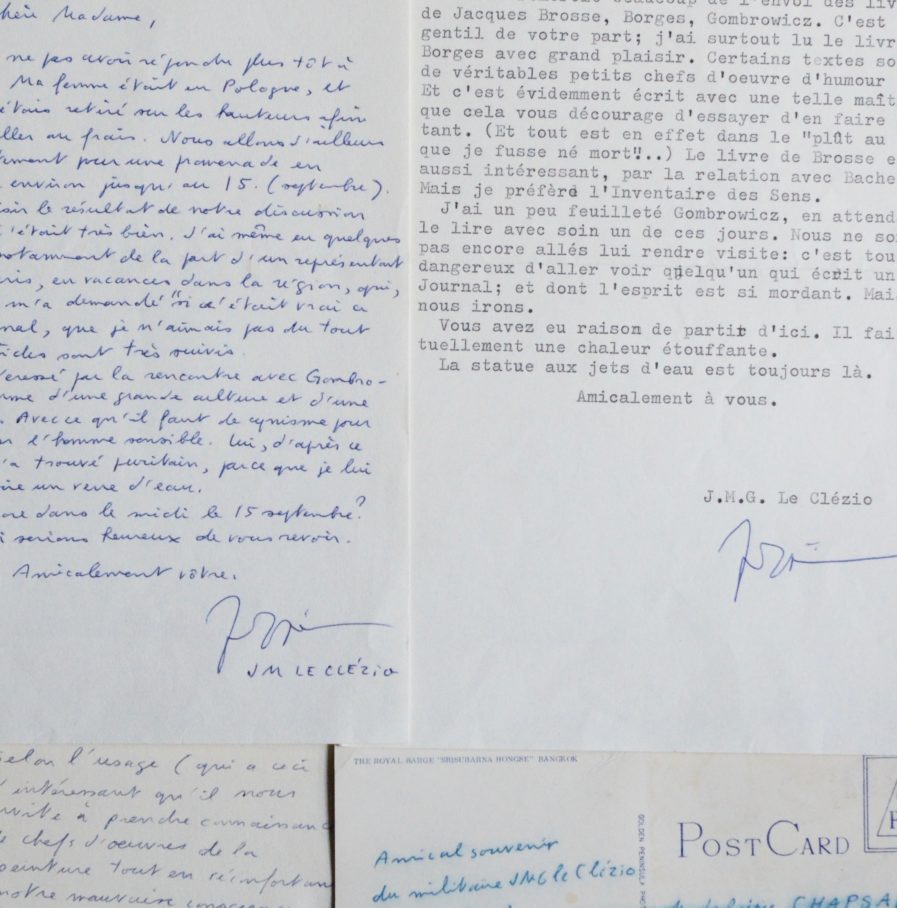 Chère Madame,
ne pas avoir répondre plus tôt à
Ma femme était en Pologne, et
étais retiré sur les hauteurs afin
aller au frais. Nous allons d'ailleurs
pour une promenade en
environ jusqu'au 15. (septembre).
le résultat de notre discussion
c'était très bien. J'ai même eu quelques
notamment de la part d'un représentant
en vacances dans la région, qui,
m'a demandé "si c'était vrai
que je n'aimais pas du tout
sont très suivis.
par la rencontre avec Gombro-
d'une grande culture et d'une
Avec ce qu'il faut de cynisme pour
l'homme sensible. Lui, d'après ce
a trouvé puritain, parce que je lui
un verre d'eau.
dans le midi le 15 septembre?
serions heureux de vous revoir.
Amicalement vôtre.
JM LE CLÉZIO
beaucoup de l'envoi des liv
de Jacques Brosse, Borges, Gombrowicz. C'est
gentil de votre part; j'ai surtout lu le livr
Borges avec grand plaisir. Certains textes so
de véritables petits chefs d'oeuvre d'humour
Et c'est évidemment écrit avec une telle maît
que cela vous décourage d'essayer d'en faire
tant. (Et tout est en effet dans le "plût au
que je fusse né mort"..) Le livre de Brosse e
aussi intéressant, par la relation avec Bache
Mais je préfère l'Inventaire des Sens.
J'ai un peu feuilleté Gombrowicz, en attend
le lire avec soin un de ces jours. Nous ne so
pas encore allés lui rendre visite: c'est tou
dangereux d'aller voir quelqu'un qui écrit un
Journal; et dont l'esprit est si mordant. Mai
nous irons.
Vous avez eu raison de partir d'ici. Il fai
tuellement une chaleur étouffante.
La statue aux jets d'eau est toujours là.
Amicalement à vous.
J.M.G. Le Clézio
selon l'usage (qui a ceci
intéressant qu'il nous
invite à prendre connaissanc
de chefs d'oeuvres de la
peinture tout en réconfortan
notre mauvaise
THE ROYAL BARGE "SRISUBARNA HONGSE" BANGKOK
GOLDEN PENINSULA
POSTCARD
Amical souvenir
du militaire JMG le Clézio
CHAPSA